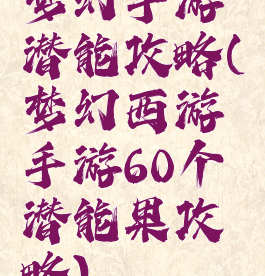 梦幻手游
潜能攻略(
梦幻西游
手游60个
潜能果攻
略)